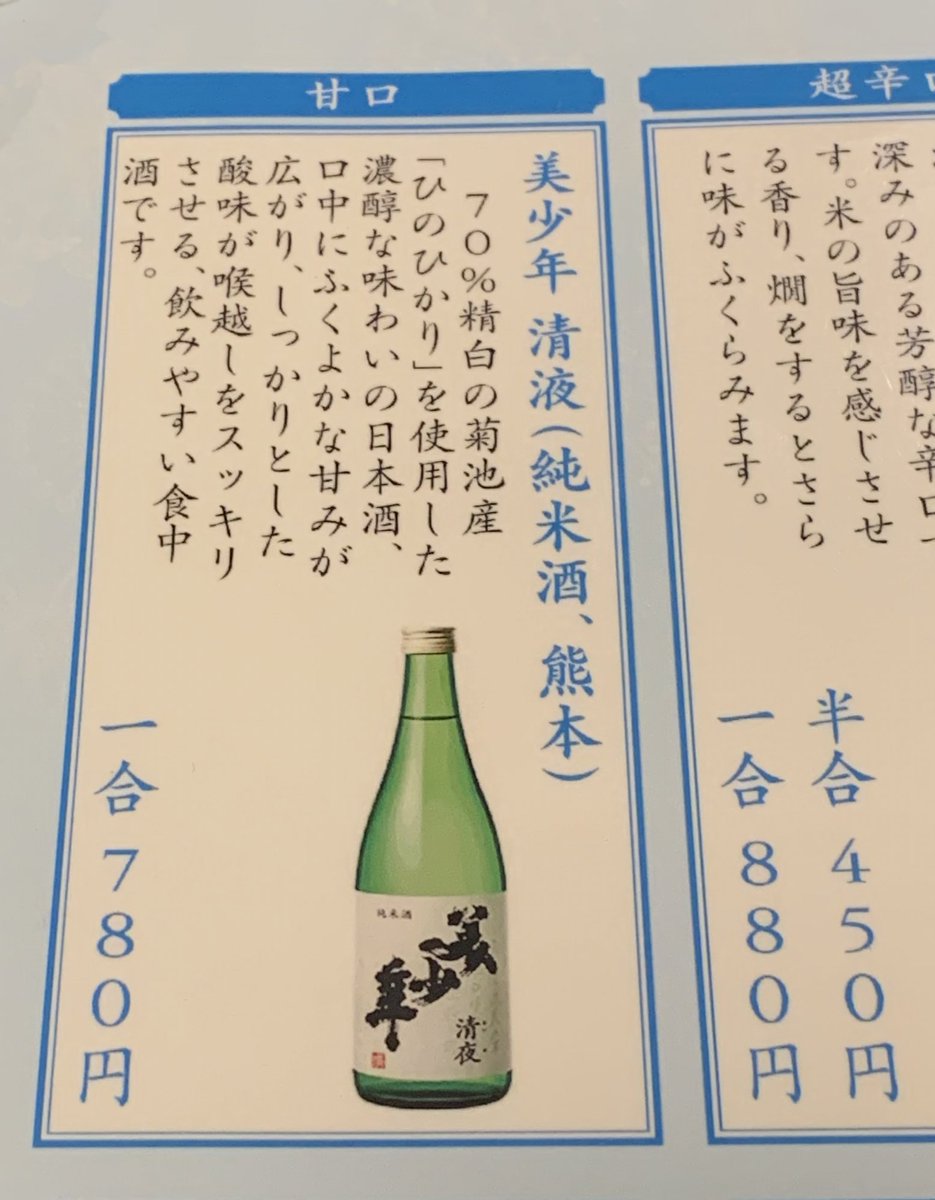 超辛口
深みのある芳醇な辛口
す。米の旨味を感じさせ
る香り、燗をするとさら
に味がふくらみます。
半合 450円
一合 880円
甘口
美少年 清液(純米酒、熊本)
70%精白の菊池産
「ひのひかり」を使用した
濃醇な味わいの日本酒、
口中にふくよかな甘みが
広がり、しっかりとした
酸味が喉越しをスッキリ
させる、飲みやすい食中
酒です。
純米酒
美少年
清夜
一合 780円